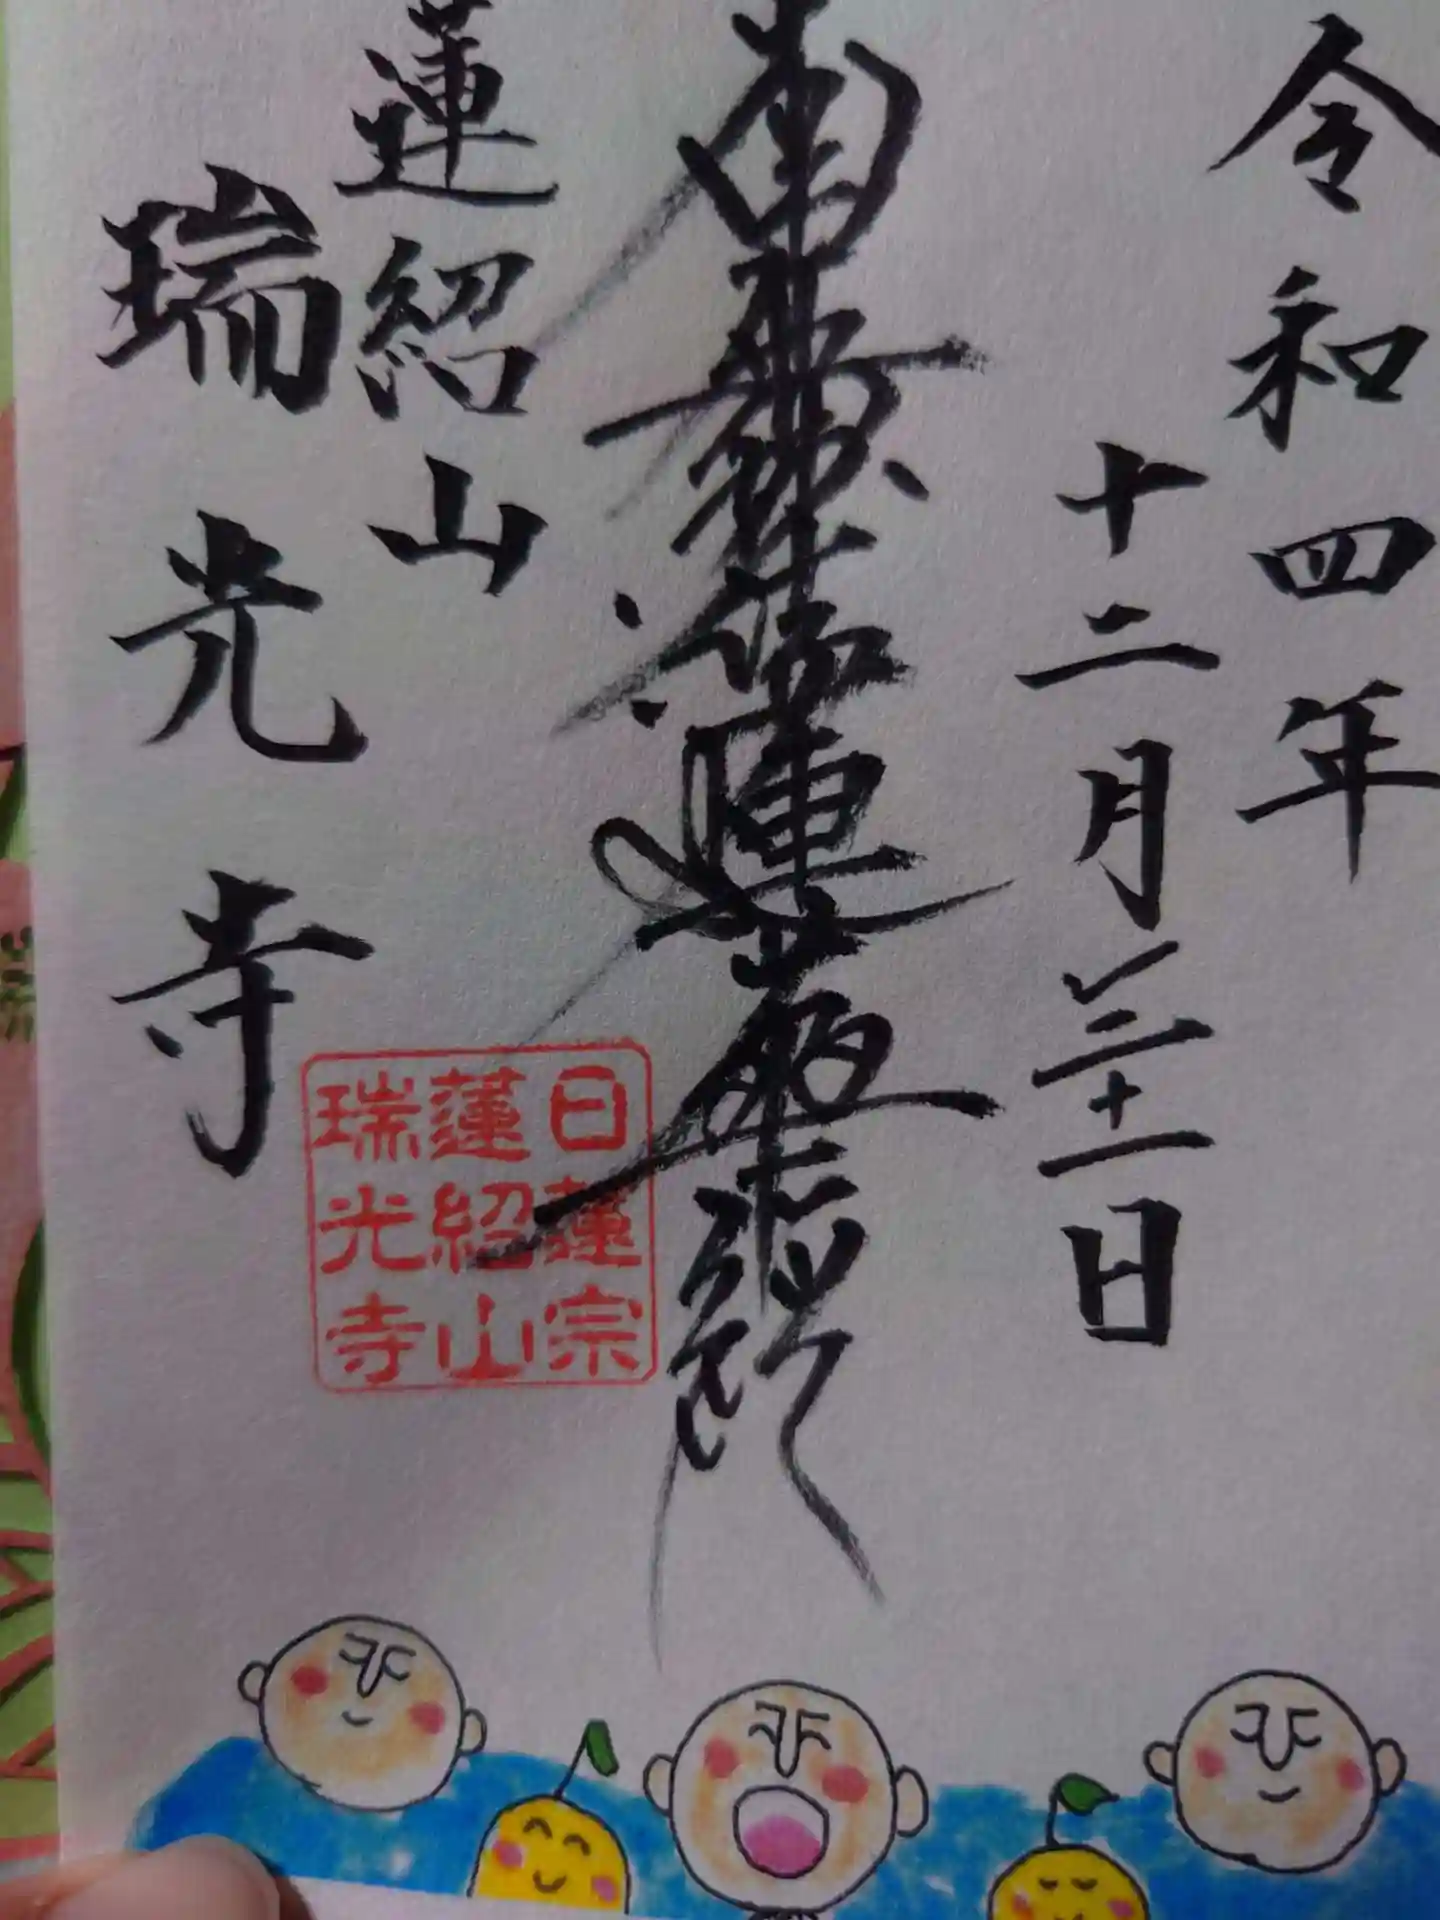 令和四年
十二月三十一日
南無妙法蓮華経
蓮紹山
瑞光寺
日蓮宗
蓮紹山
瑞光寺